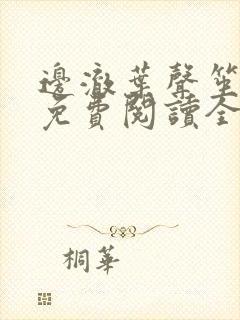 邊澈葉聲笙
免費閱讀全
桐華